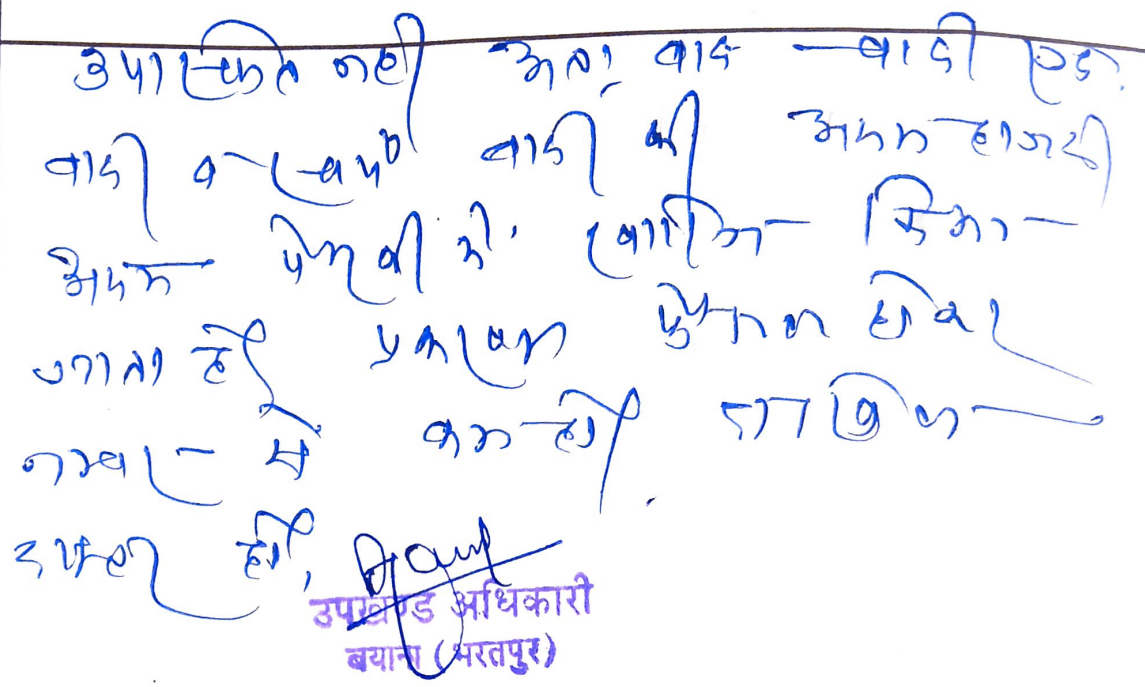 उपस्थित नहीं अतः वाद वादी
वादी व स्वयं वादी की अदम हाजरी
अदम पैरवी में खारिज किया
जाता है प्रकरण फैसल होकर
नम्बर से कम हो दाखिल
दफ्तर हो,
उपखण्ड अधिकारी
बयाना (भरतपुर)